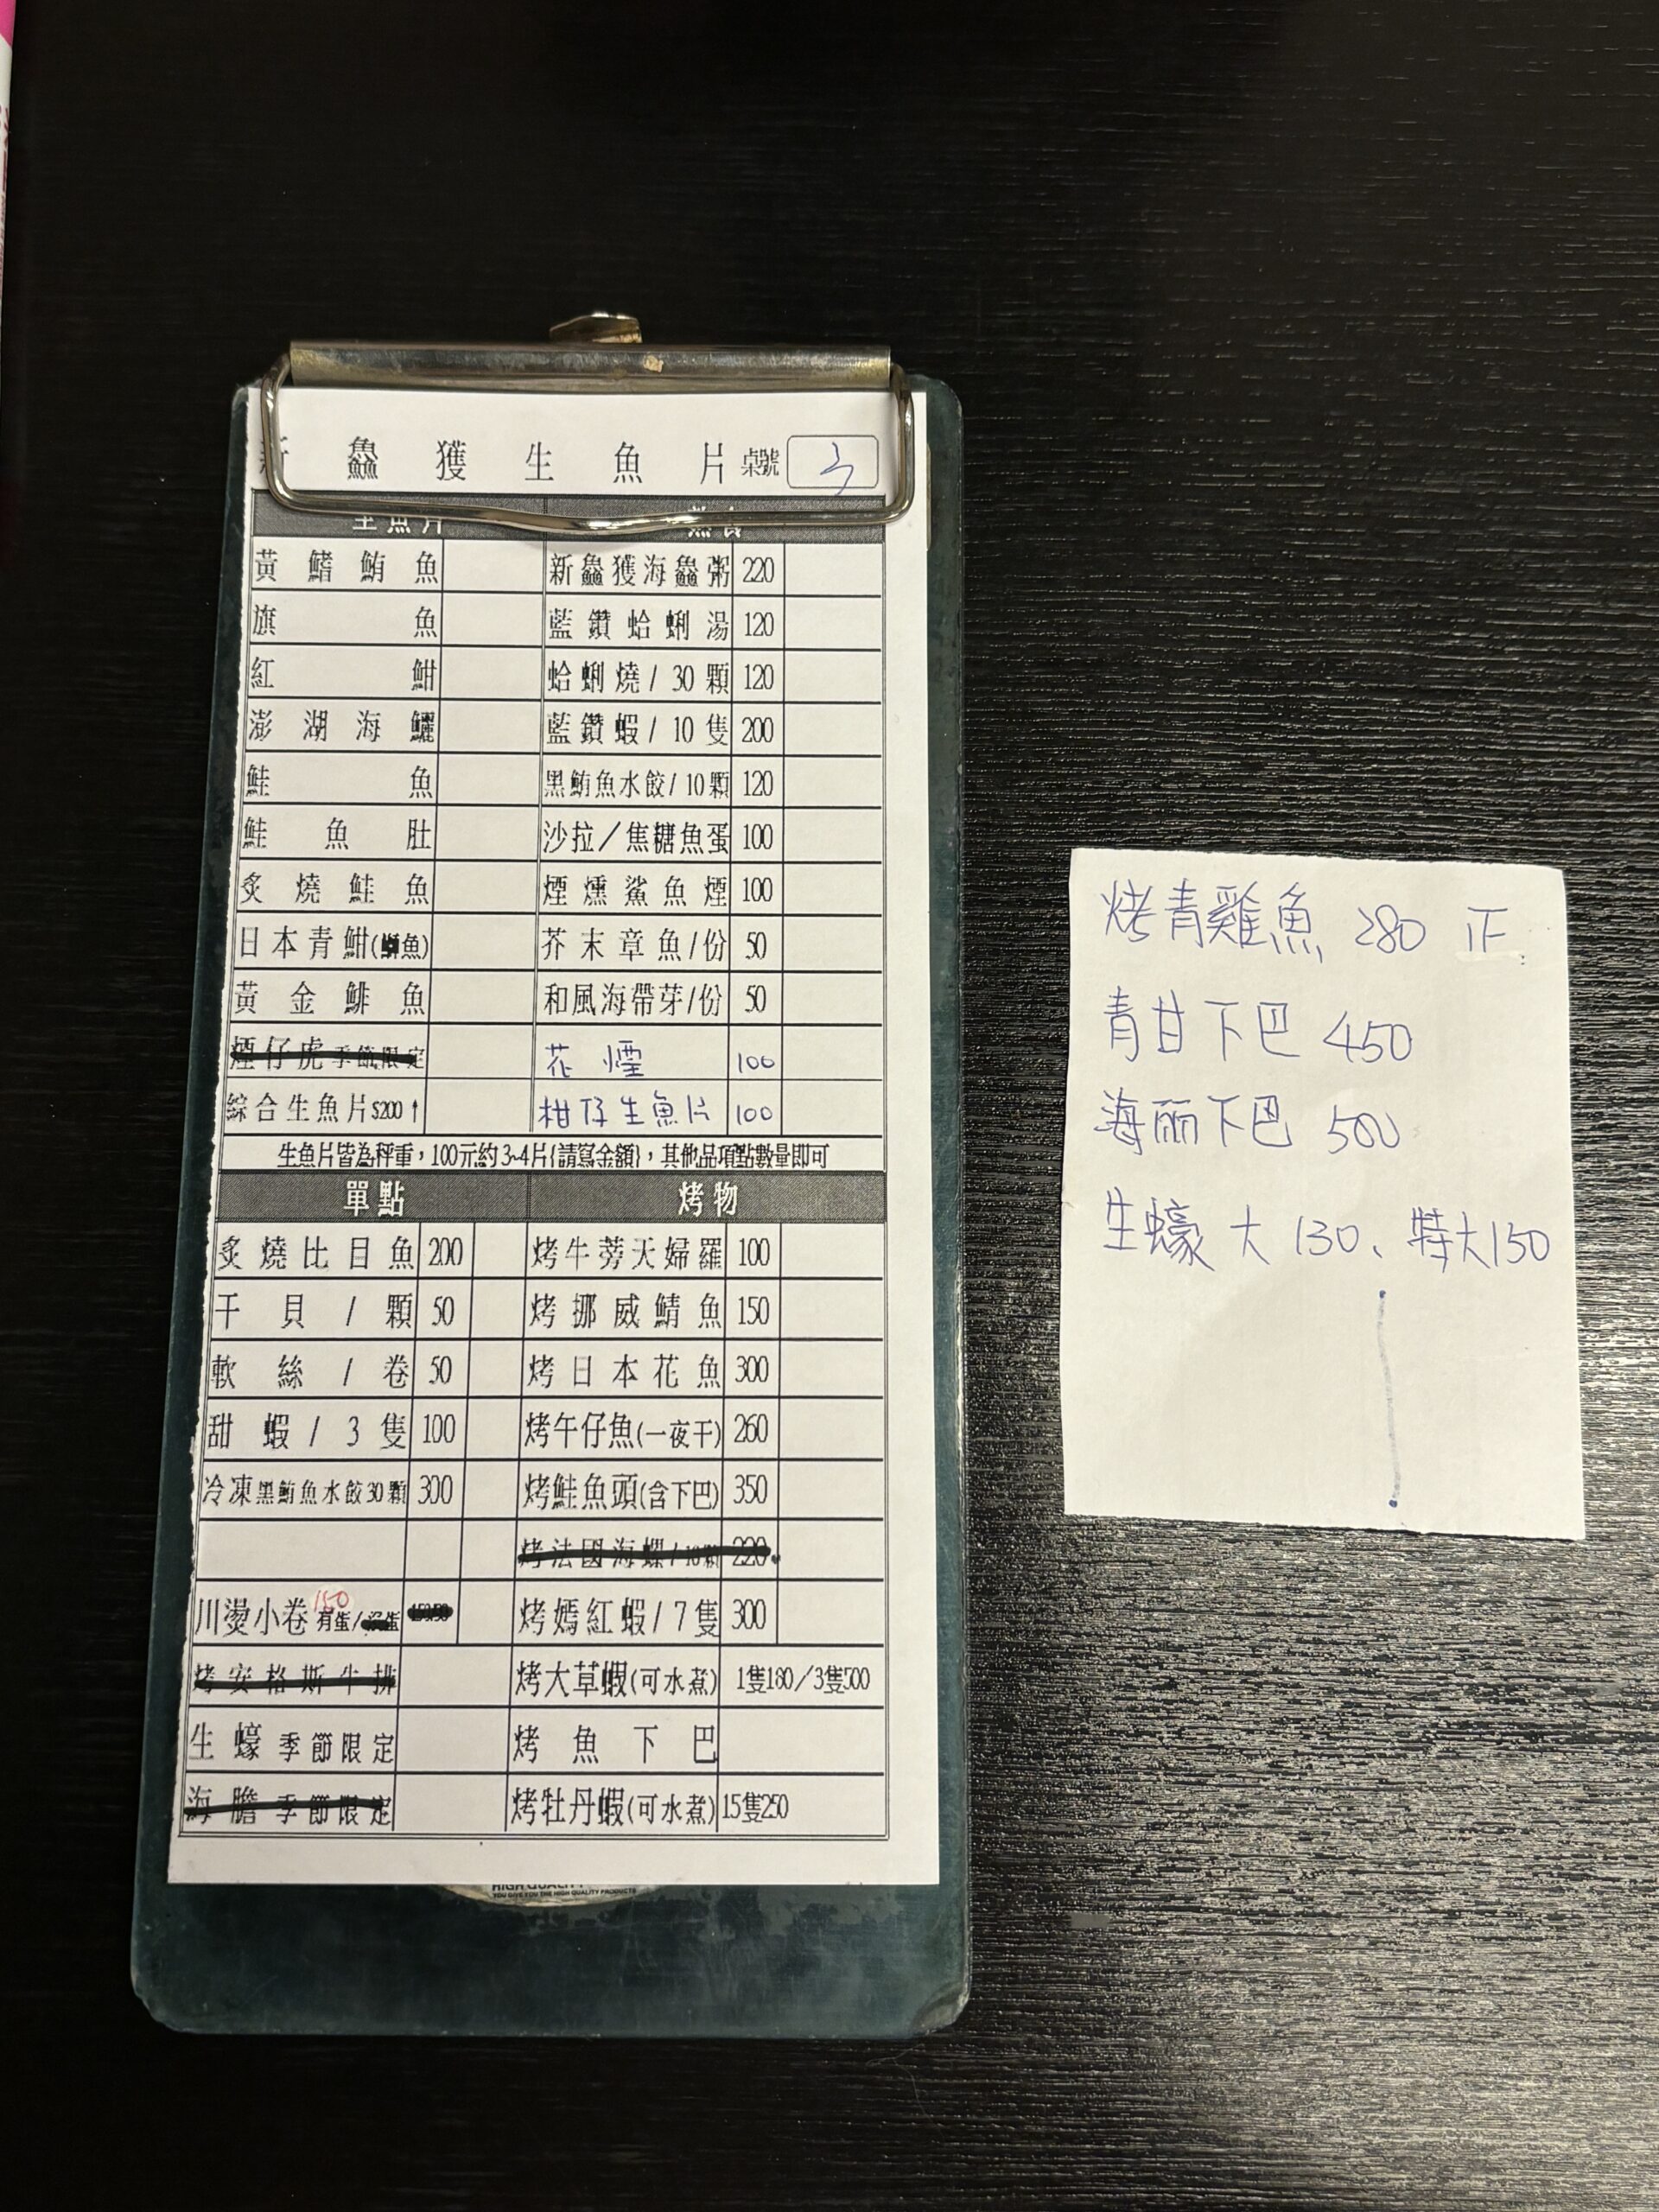 新鱻獲生魚片 桌號 3
生魚片 熟食
黃鰭鮪魚 新鱻獲海鱻粥 220
旗魚 藍鑽蛤蜊湯 120
紅魽 蛤蜊燒/30顆 120
澎湖海鱺 藍鑽蝦/10隻 200
鮭魚 黑鮪魚水餃/10顆 120
鮭魚肚 沙拉/焦糖魚蛋 100
炙燒鮭魚 煙燻鯊魚煙 100
日本青魽(鰤魚) 芥末章魚/份 50
黃金鯡魚 和風海帶芽/份 50
煙仔虎季節限定 花煙 100
綜合生魚片$200↑ 柑仔生魚片 100
生魚片皆為秤重,100元約3~4片(請寫金額),其他品項點數量即可
單點 烤物
炙燒比目魚 200 烤牛蒡天婦羅 100
干貝/顆 50 烤挪威鯖魚 150
軟絲/卷 50 烤日本花魚 300
甜蝦/3隻 100 烤午仔魚(一夜干) 260
冷凍黑鮪魚水餃30顆 300 烤鮭魚頭(含下巴) 350
烤法國海螺/10顆 220
川燙小卷 150 有蛋/沒蛋 烤嫣紅蝦/7隻 300
烤安格斯牛排 烤大草蝦(可水煮) 1隻180/3隻500
生蠔季節限定 烤魚下巴
海膽季節限定 烤牡丹蝦(可水煮) 15隻250
HIGH QUALITY
YOU GIVE YOU THE HIGH QUALITY PRODUCTS
烤青雞魚 280 正
青甘下巴 450
海丽下巴 500
生蠔 大 130、特大150